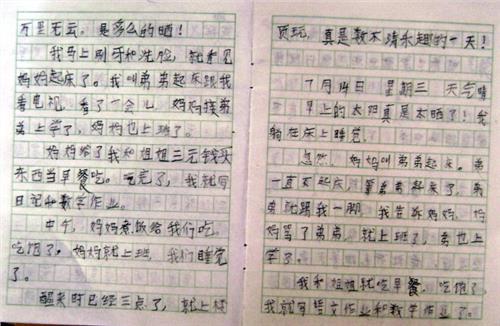 万里无云，是多么的晒！
我马上刷牙和洗脸，就看见
妈妈起床了。我叫弟弟起床跟我
看电视，看了一会儿，妈妈接弟
弟上学了，妈妈也上班了。
妈妈给了我和姐姐三元钱买
东西当早餐吃。吃完了，我就写
日记和数学作业。
中午，妈妈煮饭给我们吃，
吃饱了，妈妈就上班，我们睡觉
了。
醒来时已经三点了，就上楼
顶玩，真是数不清乐趣的一天！
7月14日 星期三 天气晴
早上的太阳真是太晒了！我
躺在床上睡觉
忽然，妈妈叫弟弟起床。弟
一直不起床，弟弟起来了，弟
弟就踢我一脚，我告诉妈妈，妈
妈骂了弟弟，就上班了，弟也上
学了
我和姐姐就吃早餐，吃饱了
我就写语文作业和数学作业了。